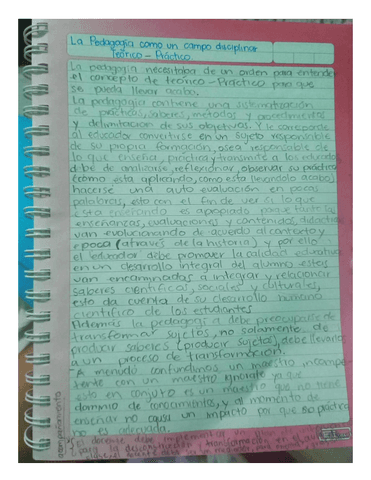 La Pedagogía como un campo disciplinar
Teórico - Práctico
La pedagogía necesitaba de un orden para entender
el concepto de teórico - Práctico para que
se pueda llevar acabo.
La pedagogía contiene una sistematización
de prácticas, saberes, metodos y procedimientos
y delimitación de sus objetivos. Y le corresponde
al educador convertirse en un sujeto responsable
de su propia formación, osea responsable de
lo que enseña, práctica y transmite a los educados
debe de analizarse, reflexionar, observar su práctica
(cómo esta aplicando, como esta llevandolo acabo)
hacerse una auto evaluación en pocas
palabras, esto con el fin de ver si lo que
esta enseñando es apropiado
enseñanzas, evaluaciones y contenidos didacticos
van evolucionando de acuerdo al contexto y
epoca (através de la historia) y por ello
el educador debe promover la calidad educativa
en un desarrollo integral del alumno estos
van encaminados a integrar y relacionar
saberes cientificos, sociales y culturales,
esto da cuenta de su desarrollo humano
cientifico de los estudiantes
Además la pedagogía debe preocuparse de
transformar sujetos, no solamente de
producir saberes (producir sujetos), debe llevarlos
a un proceso de transformación.
A menudo confundimos, un maestro incompe-
tente con un maestro ignorante ya que
esto en conjuto es un maestro que no tiene
dominio de conocimientos, y al momento de
enseñar no causa un impacto por que su práctica
no es adecuada.
El docente debe implementar en
para la transformación en el